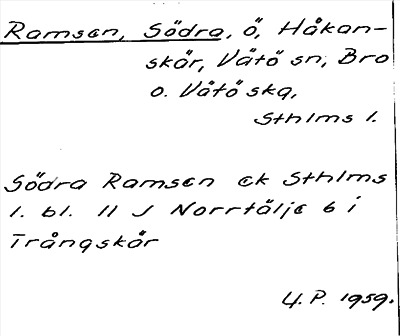 Ramsen, Södra, ö, Håkan-
skär, Vätö sn, Bro
o. Vätö skg,
Sthlms l.
Södra Ramsen ek Sthlms
l. bl. 11 J Norrtälje 6 i
Trångskär
U.P. 1959.